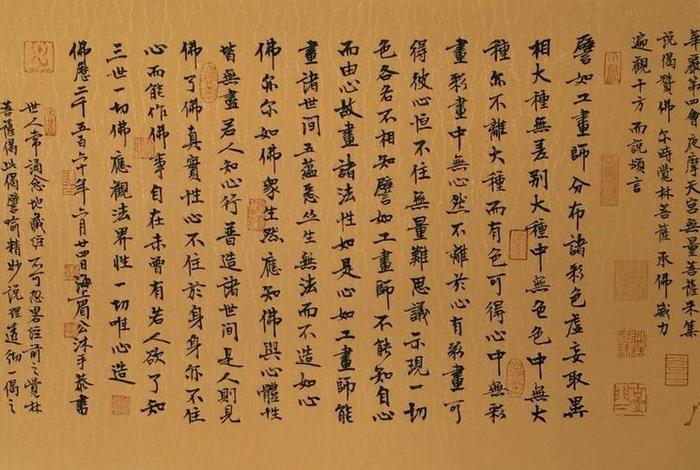 華嚴第四會夜摩天宮無量菩薩來集
說偈贊佛尔時覺林菩薩承佛威力
遍觀十方而說頌言
譬如工畫師分布諸彩色虛妄取異
相大種無差別大種中無色色中無大
種亦不離大種而有色可得心中無彩
畫彩畫中無心然不離於心有彩畫可
得彼心恒不住無量難思議示現一切
色各各不相知譬如工畫師不能知自心
而由心故畫諸法性如是心如工畫師能
畫諸世间五蕴悉丛生無法而不造如心
佛亦尔如佛衆生然應知佛與心體性
皆無盡若人知心行普造諸世间是人則見
佛了佛真實性心不住於身身亦不住
心而能作佛事自在未曾有若人欲了知
三世一切佛應觀法界性一切唯心造
佛歷二千五百六十年六月廿四日海眉公沐手恭書
世人常誦念地藏经不可忽畧经前之覺林
菩薩偈此偈譬喻精妙說理透彻一偈之